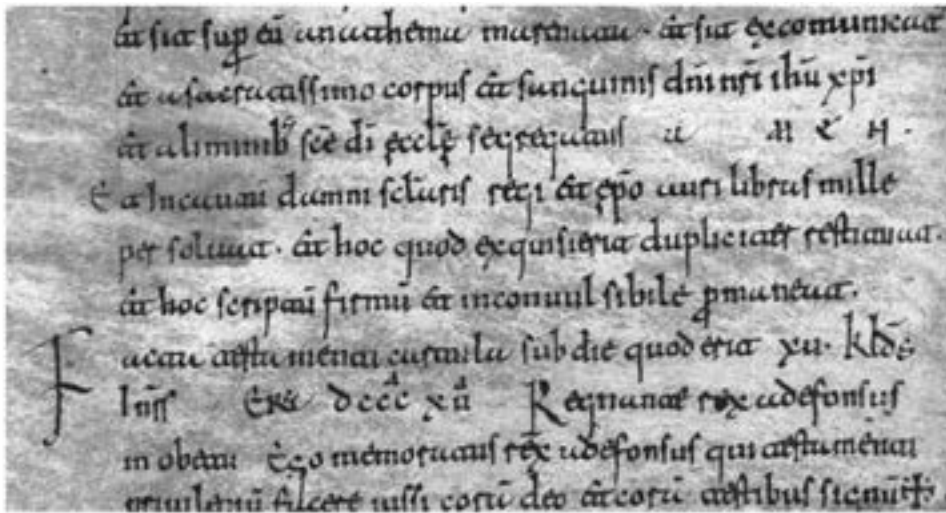 et sit sup eū anathema marenata · et sit excomunicat
et a sacratissimo corpus et sanguinis dnī nrī ihū xpī
et a liminibꝰ scē dī ecclē segregatus a M E N ·
Et Incauti damni seclaris regi et epo auri libras mille
per solvat · et hoc quod exquisierit dupliciter restituat ·
et hoc scriptū firmū et inconvulsibile pmaneat ·
Facta testamenti cartula sub die quod erit xii · klds
Era dcccc xii Regnante rex adefonsus
in obetu Ego memoratus rex adefonsus qui testamenti
privilegiū fieri iussi corā deo et corā testibus signū